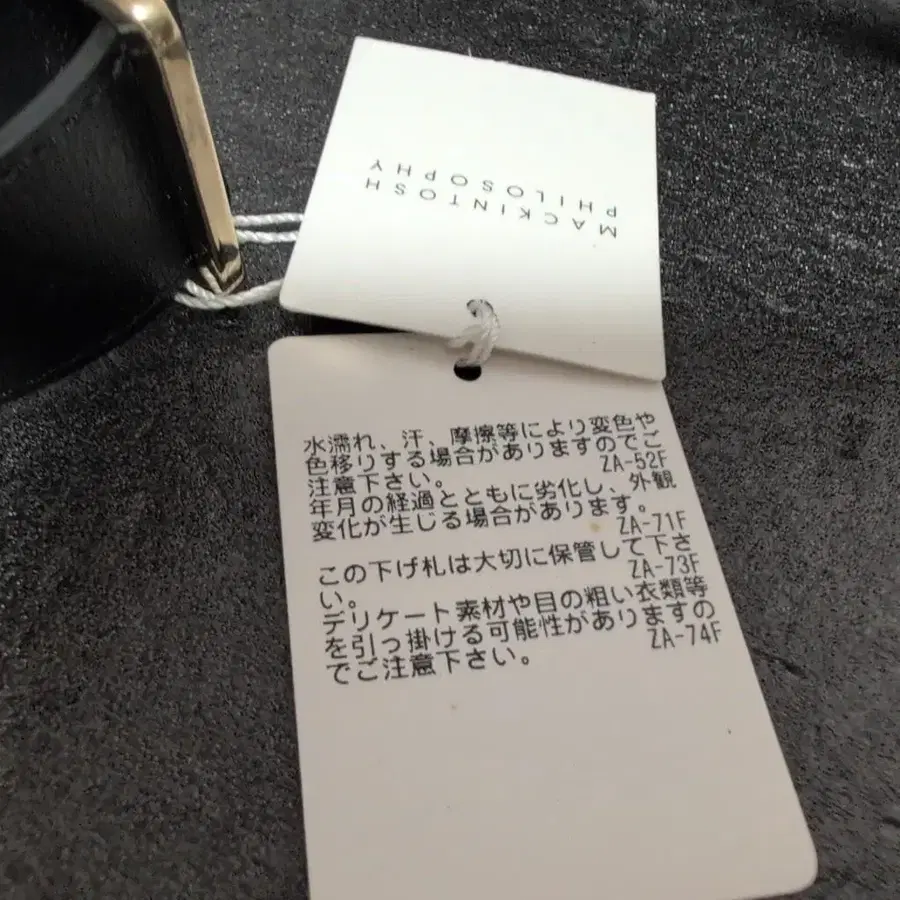 MACKINTOSH
PHILOSOPHY
水濡れ、汗、摩擦等により変色や
色移りする場合がありますのでご
注意下さい。 ZA-52F
年月の経過とともに劣化し、外観
変化が生じる場合があります。
ZA-71F
この下げ札は大切に保管して下さ
い。 ZA-73F
デリケート素材や目の粗い衣類等
を引っ掛ける可能性がありますの
でご注意下さい。 ZA-74F